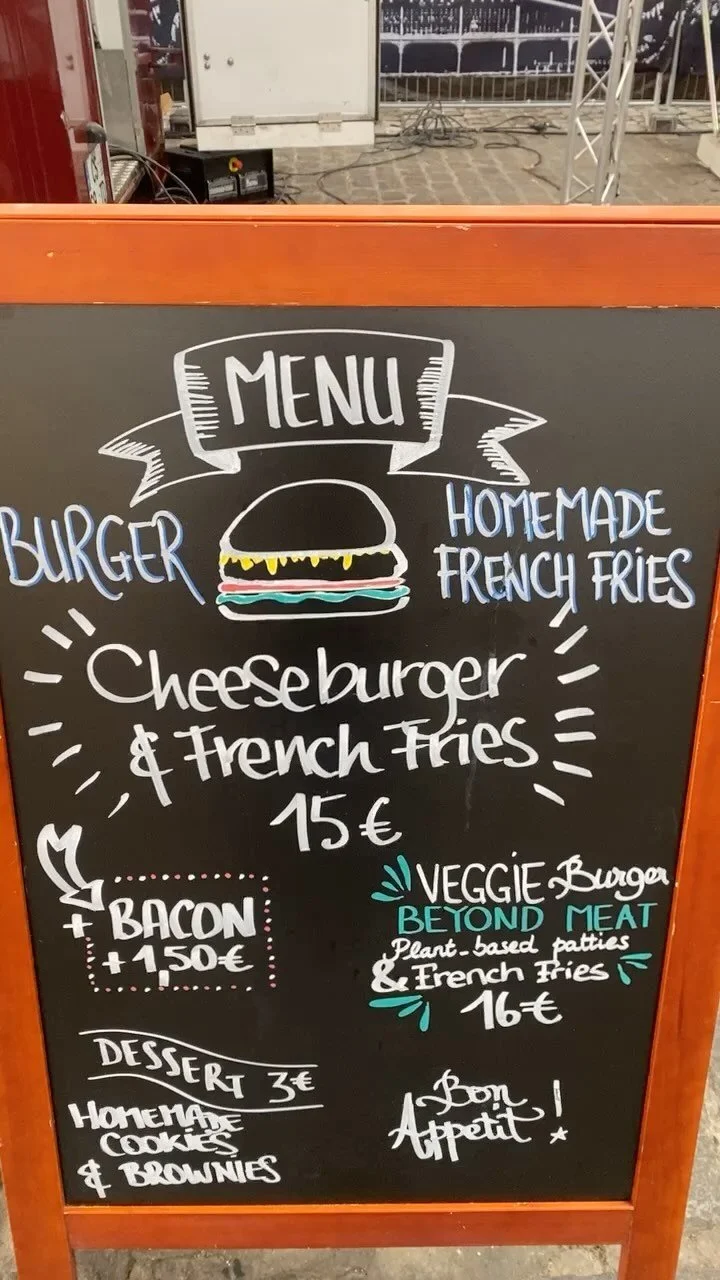 MENU
BURGER
HOMEMADE
FRENCH FRIES
Cheeseburger
& French Fries
15€
+ BACON
+ 1,50€
VEGGiE Burger
BEYOND MEAT
Plant-based patties
& French Fries
16€
DESSERT 3€
HOMEMADE
COOKIES
& BROWNIES
Bon
Appétit !